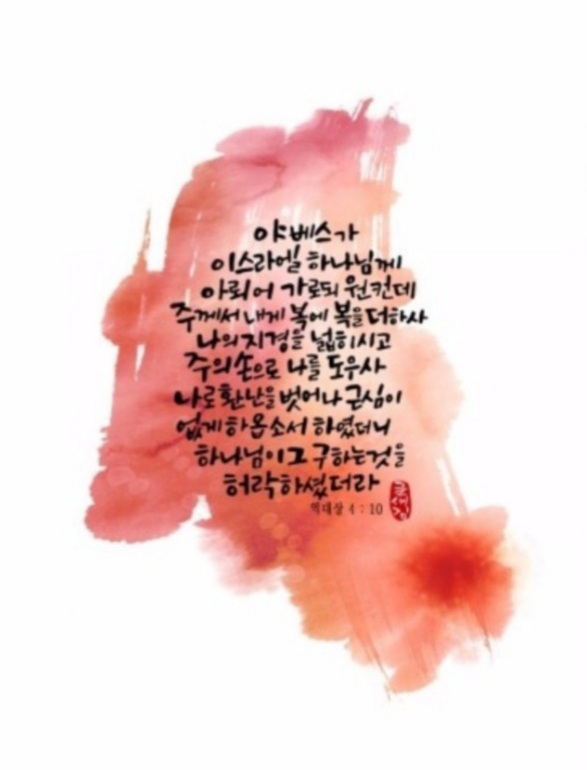 야베스가
이스라엘 하나님께
아뢰어 가로되 원컨데
주께서 내게 복에 복을 더하사
나의 지경을 넓히시고
주의 손으로 나를 도우사
나로 환난을 벗어나 근심이
없게 하옵소서 하였더니
하나님이 그 구하는것을
허락하셨더라
역대상 4 : 10